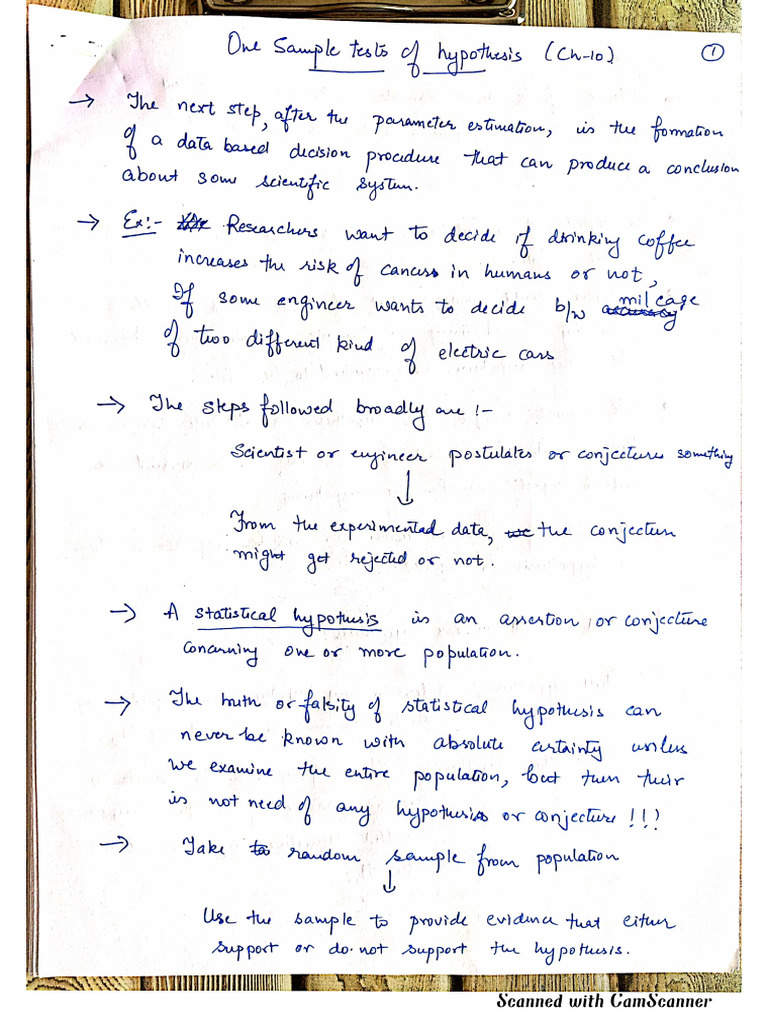 One Sample tests of hypothesis (Ch-10) 1
→ The next step, after the parameter estimation, is the formation
of a data based decision procedure that can produce a conclusion
about some scientific system.
→ Ex:- Researchers want to decide if drinking coffee
increases the risk of cancer in humans or not,
If some engineer wants to decide b/w mileage
of two different kind of electric cars
→ The steps followed broadly are :-
Scientist or engineer postulates or conjectures something
↓
From the experimental data, the conjecture
might get rejected or not.
→ A statistical hypothesis is an assertion or conjecture
concerning one or more population.
→ The truth or falsity of statistical hypothesis can
never be known with absolute certainty unless
we examine the entire population, but then their
is not need of any hypothesis or conjecture !!!
→ Take random sample from population
↓
Use the sample to provide evidence that either
support or do not support the hypothesis.
Scanned with CamScanner